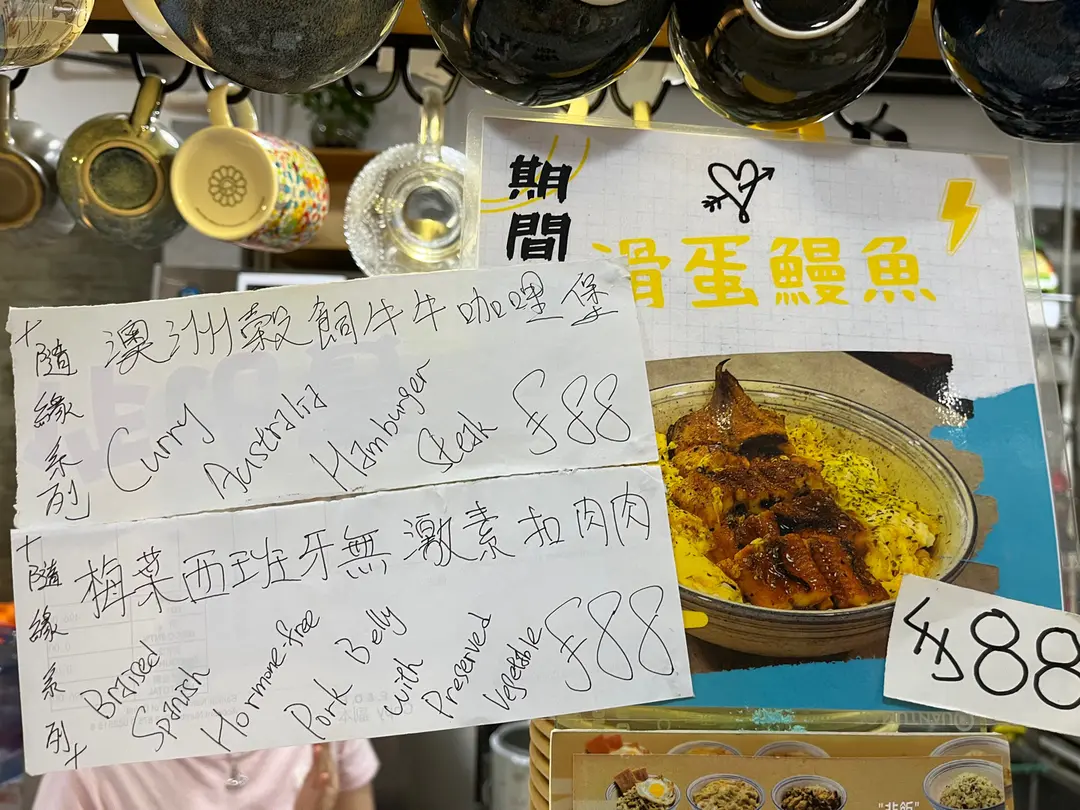 期間
滑蛋鰻魚
+隨緣系列
澳洲穀飼牛牛咖哩堡
Curry Australia Hamburger Steak $88
+隨緣系列+
梅菜西班牙無激素扣肉肉
Braised Spanish Hormone-free Pork Belly with Preserved Vegetable $88
$88